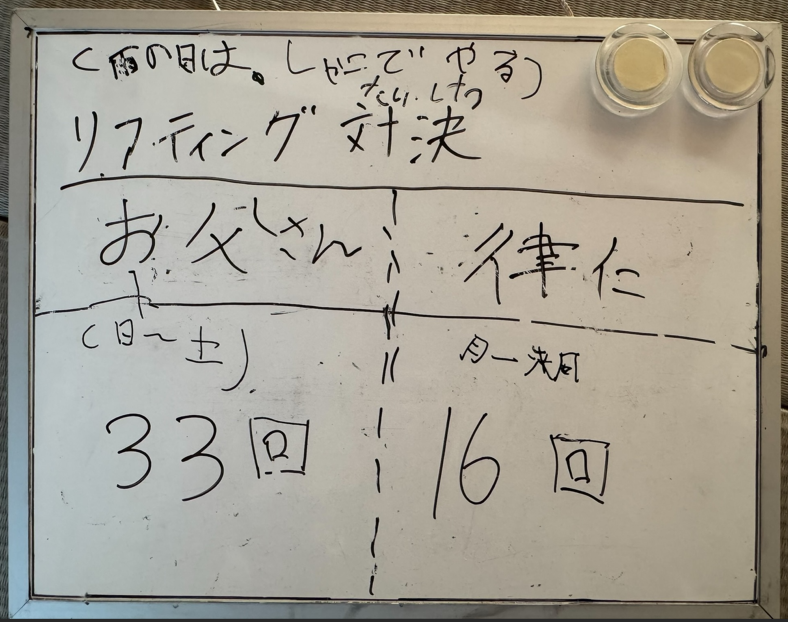 (雨の日は。しゃこでやる)
たいけつ
リフティング 対決
お父さん
律仁
(日〜土)
月ー来日
33回
16回